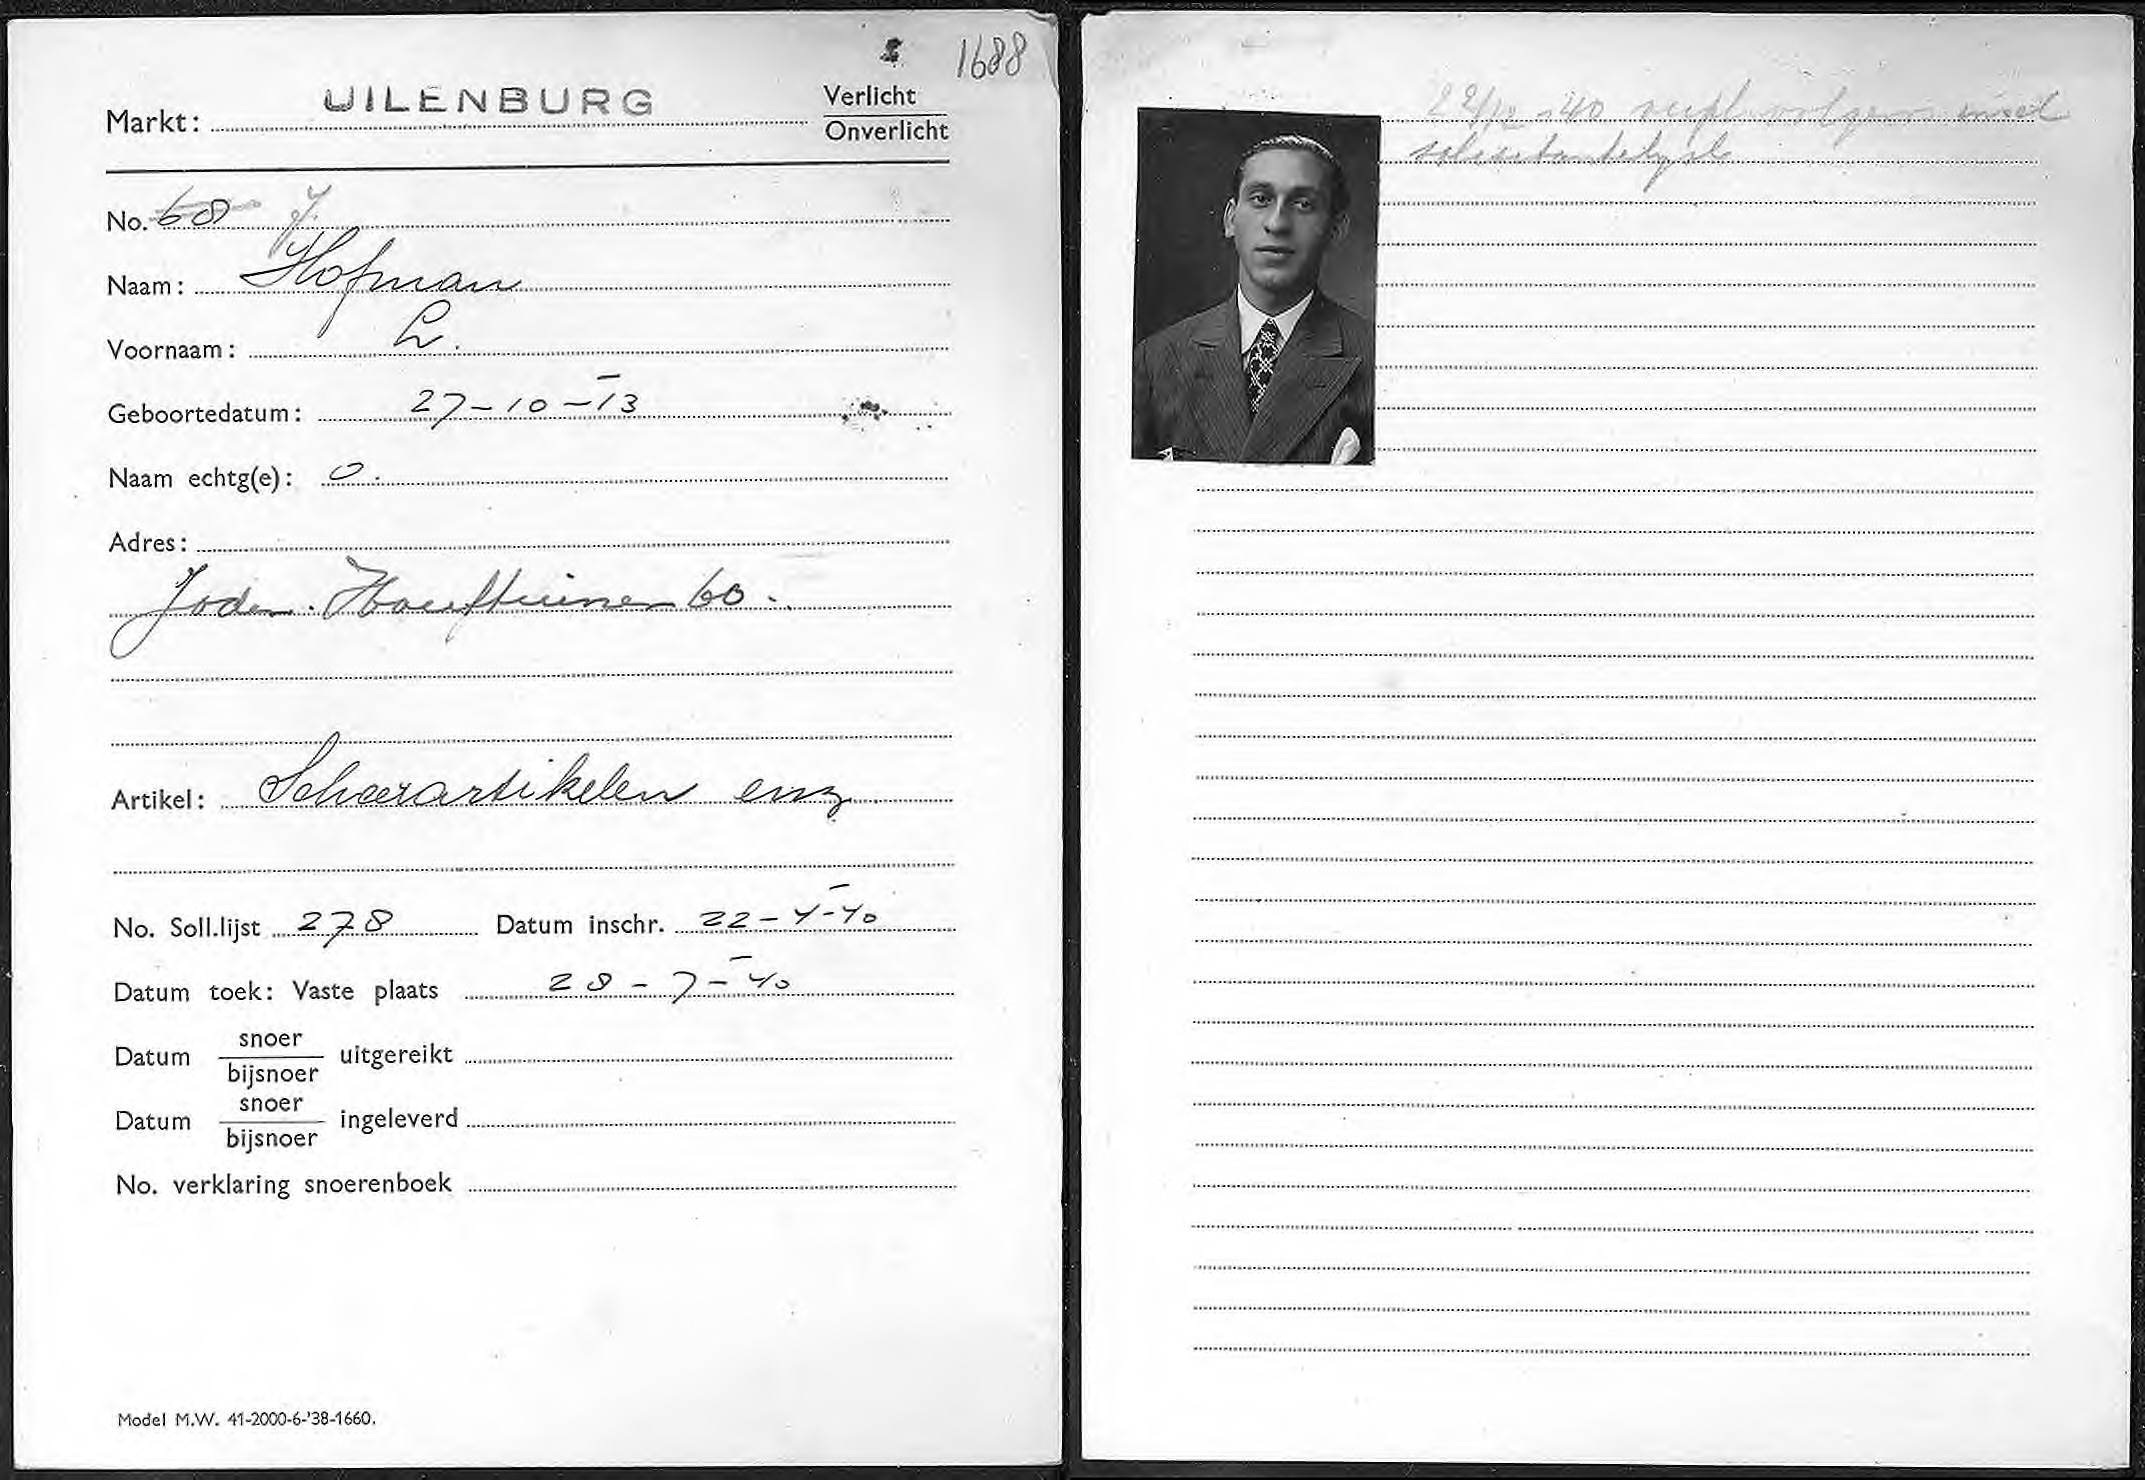 1688
Markt: UILENBURG
Verlicht
Onverlicht
No. 68 J.
Naam: Hofman
Voornaam: L.
Geboortedatum: 27-10-13
Naam echtg(e): 0.
Adres:
Joden Houttuinen 60.
Artikel: Scheerartikelen enz
No. Soll.lijst 278 Datum inschr. 22-4-40
Datum toek: Vaste plaats 28-7-40
Datum snoer
bijsnoer uitgereikt
Datum snoer
bijsnoer ingeleverd
No. verklaring snoerenboek
Model M.W. 41-2000-6-'38-1660.
/12-40
sollicitantelijst